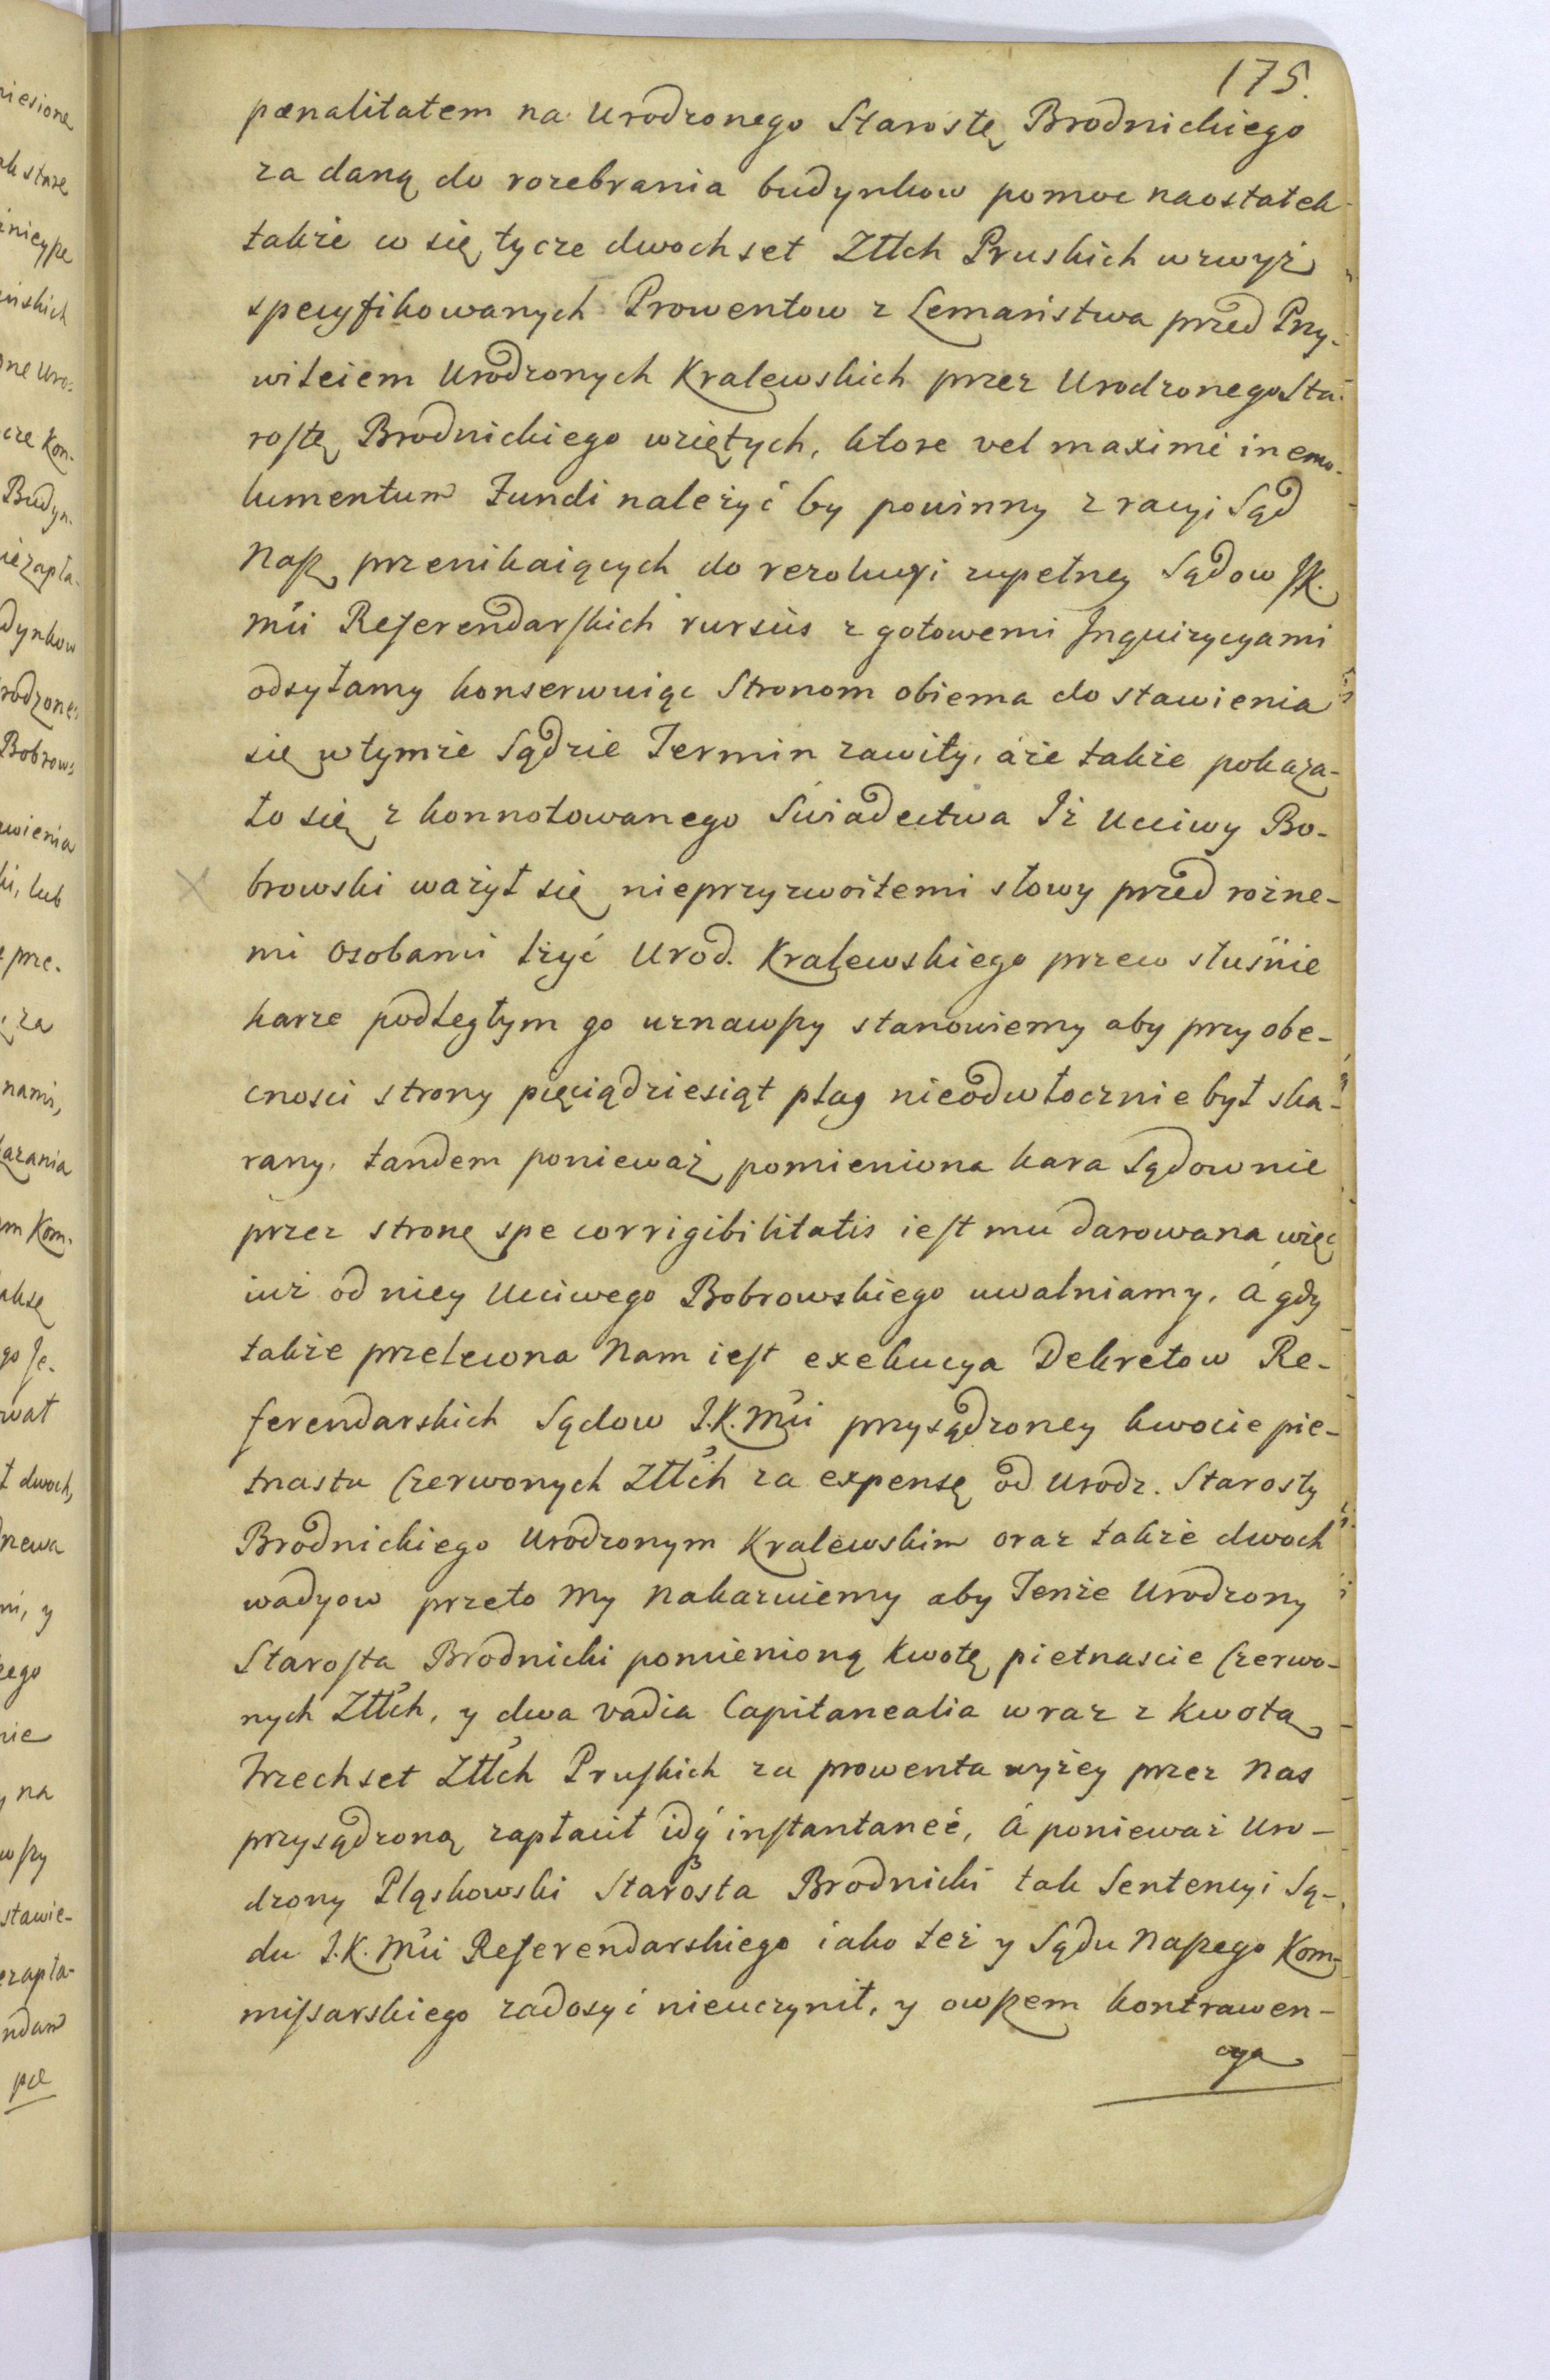 175.
pœnalitatem na Urodzonego Starostę Brodnickiego
za daną do rozebrania budynkow pomoc naostatek
także co się tycze dwochset Złłch Pruskich wzwyż
specyfikowanych Prowentow z Lemaństwa przed Przy-
wileiem Urodzonych Kralewskich przez Urodzonego Sta-
rostę Brodnickiego wziętych, ktore vel maximè in emo-
lumentum Fundi należyć by powinny z racyi Sąd
Nasz przenikaiących do rezolucyi zupełney Sądow JK.
Mći Referendarskich rursus z gotowemi Inquizycyami
odsyłamy konserwuiąc Stronom obiema do stawienia
się wtymże Sądzie Termin zawity, áże także pokaza-
ło się z konnotowanego Świadectwa Iż Ucciwy Bo-
browski ważył się nieprzyzwoitemi słowy przed rożne-
mi Osobami lżyć Urod. Kralewskiego przeco słusznie
karze podległym go uznawszy stanowiemy aby przy obe-
cnosci strony pięciądziesiąt plag nieodwłocznie był ska-
rany, tandem ponieważ pomieniona kara Sądownie
przez stronę spe corrigibilitatis iest mu darowana więc
iuż od niey Ucciwego Bobrowskiego uwalniamy, á gdy
także przelewona Nam iest exekucya Dekretow Re-
ferendarskich Sądow J.K.Mći przysądzoney kwocie pie-
tnastu Czerwonych Złłch za expensę od Urodz. Starosty
Brodnickiego Urodzonym Kralewskim oraz także dwoch
wadyow przeto My Nakazuiemy aby Tenże Urodzony
Starosta Brodnicki pomienioną kwotę pietnascie Czerwo-
nych Złłch, y dwa vadia Capitanealia wraz z kwotą
Trzechset Złłch Pruskich za prowenta wyżey przez Nas
przysądzoną zapłacił idq́ instantaneè, á ponieważ Uro-
dzony Pląskowski Starosta Brodnicki tak Sentencyi Są-
du J.K.Mći Referendarskiego iako też y Sądu Naszego Kom-
missarskiego zadosyć nieuczynił, y owszem kontrawen-
cya